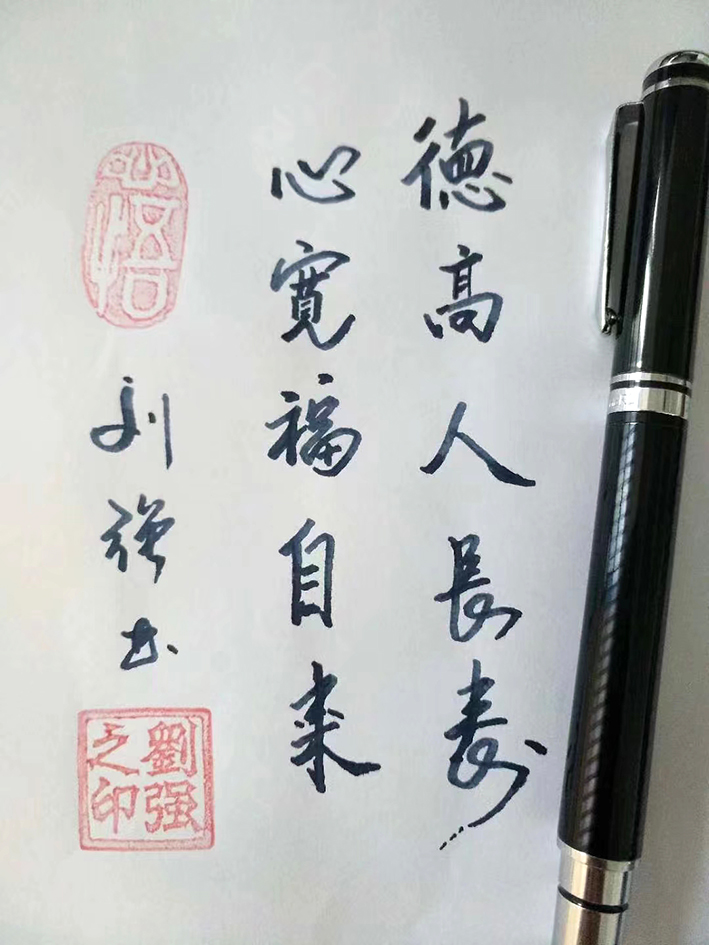 德高人長寿
心寬福自来
刘强书
劉强之印